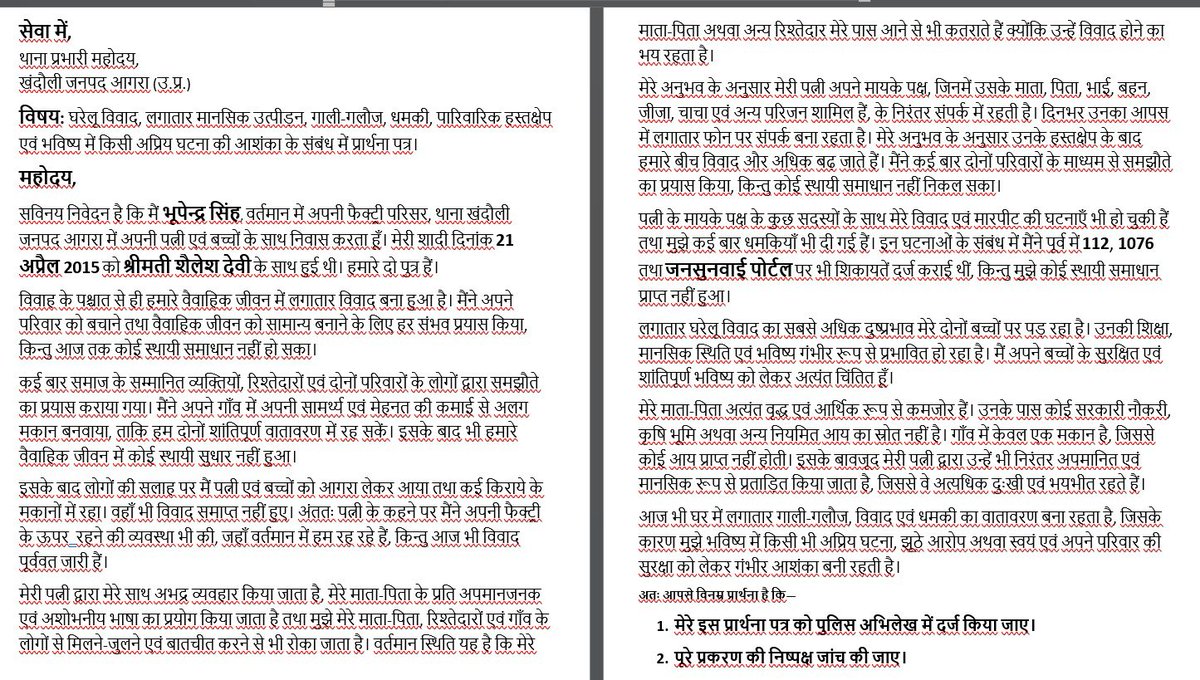 सेवा में,
थाना प्रभारी महोदय,
खंदौली जनपद आगरा (उ.प्र.)
विषय: घरेलू विवाद, लगातार मानसिक उत्पीड़न, गाली-गलौज, धमकी, पारिवारिक हस्तक्षेप
एवं भविष्य में किसी अप्रिय घटना की आशंका के संबंध में प्रार्थना पत्र।
महोदय,
सविनय निवेदन है कि मैं भूपेन्द्र सिंह, वर्तमान में अपनी फैक्ट्री परिसर, थाना खंदौली
जनपद आगरा में अपनी पत्नी एवं बच्चों के साथ निवास करता हूँ। मेरी शादी दिनांक 21
अप्रैल 2015 को श्रीमती शैलेश देवी के साथ हुई थी। हमारे दो पुत्र हैं।
विवाह के पश्चात से ही हमारे वैवाहिक जीवन में लगातार विवाद बना हुआ है। मैंने अपने
परिवार को बचाने तथा वैवाहिक जीवन को सामान्य बनाने के लिए हर संभव प्रयास किया,
किन्तु आज तक कोई स्थायी समाधान नहीं हो सका।
कई बार समाज के सम्मानित व्यक्तियों, रिश्तेदारों एवं दोनों परिवारों के लोगों द्वारा समझौते
का प्रयास कराया गया। मैंने अपने गाँव में अपनी सामर्थ्य एवं मेहनत की कमाई से अलग
मकान बनवाया, ताकि हम दोनों शांतिपूर्ण वातावरण में रह सकें। इसके बाद भी हमारे
वैवाहिक जीवन में कोई स्थायी सुधार नहीं हुआ।
इसके बाद लोगों की सलाह पर मैं पत्नी एवं बच्चों को आगरा लेकर आया तथा कई किराये के
मकानों में रहा। वहाँ भी विवाद समाप्त नहीं हुए। अंततः पत्नी के कहने पर मैंने अपनी फैक्ट्री
के ऊपर रहने की व्यवस्था भी की, जहाँ वर्तमान में हम रह रहे हैं, किन्तु आज भी विवाद
पूर्ववत जारी हैं।
मेरी पत्नी द्वारा मेरे साथ अभद्र व्यवहार किया जाता है, मेरे माता-पिता के प्रति अपमानजनक
एवं अशोभनीय भाषा का प्रयोग किया जाता है तथा मुझे मेरे माता-पिता, रिश्तेदारों एवं गाँव के
लोगों से मिलने-जुलने एवं बातचीत करने से भी रोका जाता है। वर्तमान स्थिति यह है कि मेरे
माता-पिता अथवा अन्य रिश्तेदार मेरे पास आने से भी कतराते हैं क्योंकि उन्हें विवाद होने का
भय रहता है।
मेरे अनुभव के अनुसार मेरी पत्नी अपने मायके पक्ष, जिनमें उसके माता, पिता, भाई, बहन,
जीजा, चाचा एवं अन्य परिजन शामिल हैं, के निरंतर संपर्क में रहती है। दिनभर उनका आपस
में लगातार फोन पर संपर्क बना रहता है। मेरे अनुभव के अनुसार उनके हस्तक्षेप के बाद
हमारे बीच विवाद और अधिक बढ़ जाते हैं। मैंने कई बार दोनों परिवारों के माध्यम से समझौते
का प्रयास किया, किन्तु कोई स्थायी समाधान नहीं निकल सका।
पत्नी के मायके पक्ष के कुछ सदस्यों के साथ मेरे विवाद एवं मारपीट की घटनाएँ भी हो चुकी हैं
तथा मुझे कई बार धमकियाँ भी दी गई हैं। इन घटनाओं के संबंध में मैंने पूर्व में 112, 1076
तथा जनसुनवाई पोर्टल पर भी शिकायतें दर्ज कराई थीं, किन्तु मुझे कोई स्थायी समाधान
प्राप्त नहीं हुआ।
लगातार घरेलू विवाद का सबसे अधिक दुष्प्रभाव मेरे दोनों बच्चों पर पड़ रहा है। उनकी शिक्षा,
मानसिक स्थिति एवं भविष्य गंभीर रूप से प्रभावित हो रहा है। मैं अपने बच्चों के सुरक्षित एवं
शांतिपूर्ण भविष्य को लेकर अत्यंत चिंतित हूँ।
मेरे माता-पिता अत्यंत वृद्ध एवं आर्थिक रूप से कमजोर हैं। उनके पास कोई सरकारी नौकरी,
कृषि भूमि अथवा अन्य नियमित आय का स्रोत नहीं है। गाँव में केवल एक मकान है, जिससे
कोई आय प्राप्त नहीं होती। इसके बावजूद मेरी पत्नी द्वारा उन्हें भी निरंतर अपमानित एवं
मानसिक रूप से प्रताड़ित किया जाता है, जिससे वे अत्यधिक दुःखी एवं भयभीत रहते हैं।
आज भी घर में लगातार गाली-गलौज, विवाद एवं धमकी का वातावरण बना रहता है, जिसके
कारण मुझे भविष्य में किसी भी अप्रिय घटना, झूठे आरोप अथवा स्वयं एवं अपने परिवार की
सुरक्षा को लेकर गंभीर आशंका बनी रहती है।
अतः आपसे विनम्र प्रार्थना है कि—
1. मेरे इस प्रार्थना पत्र को पुलिस अभिलेख में दर्ज किया जाए।
2. पूरे प्रकरण की निष्पक्ष जांच की जाए।